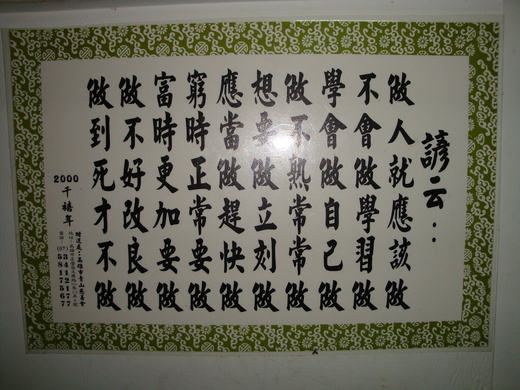 諺云：
做人就應該做
不會做學習做
學會做自己做
做不熟常常做
想要做立刻做
應當做趕快做
窮時正常要做
富時更加要做
做不好改良做
做到死才不做
2000
千禧年
(07)